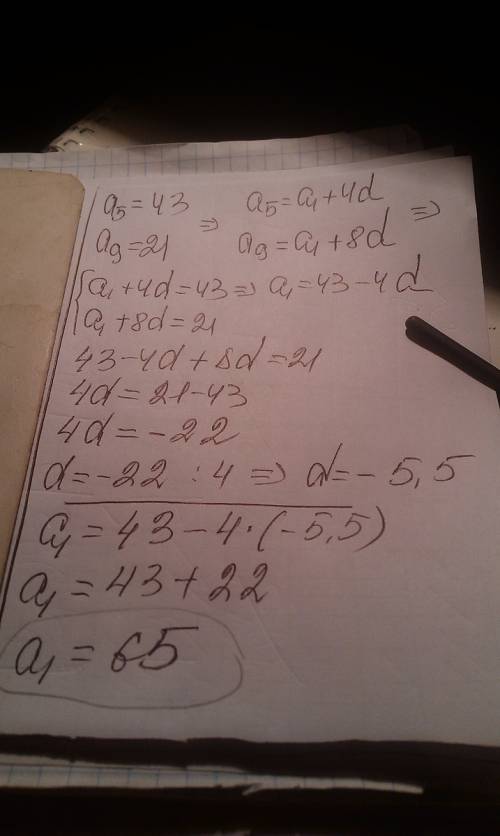 a₅=43 ⇒ a₅=a₁+4d ⇒
a₉=21 a₉=a₁+8d
{a₁+4d=43⇒a₁=43-4d
a₁+8d=21
43-4d+8d=21
4d=21-43
4d=-22
d=-22 :4 ⇒ d=-5,5
a₁=43-4·(-5,5)
a₁=43+22
a₁=65